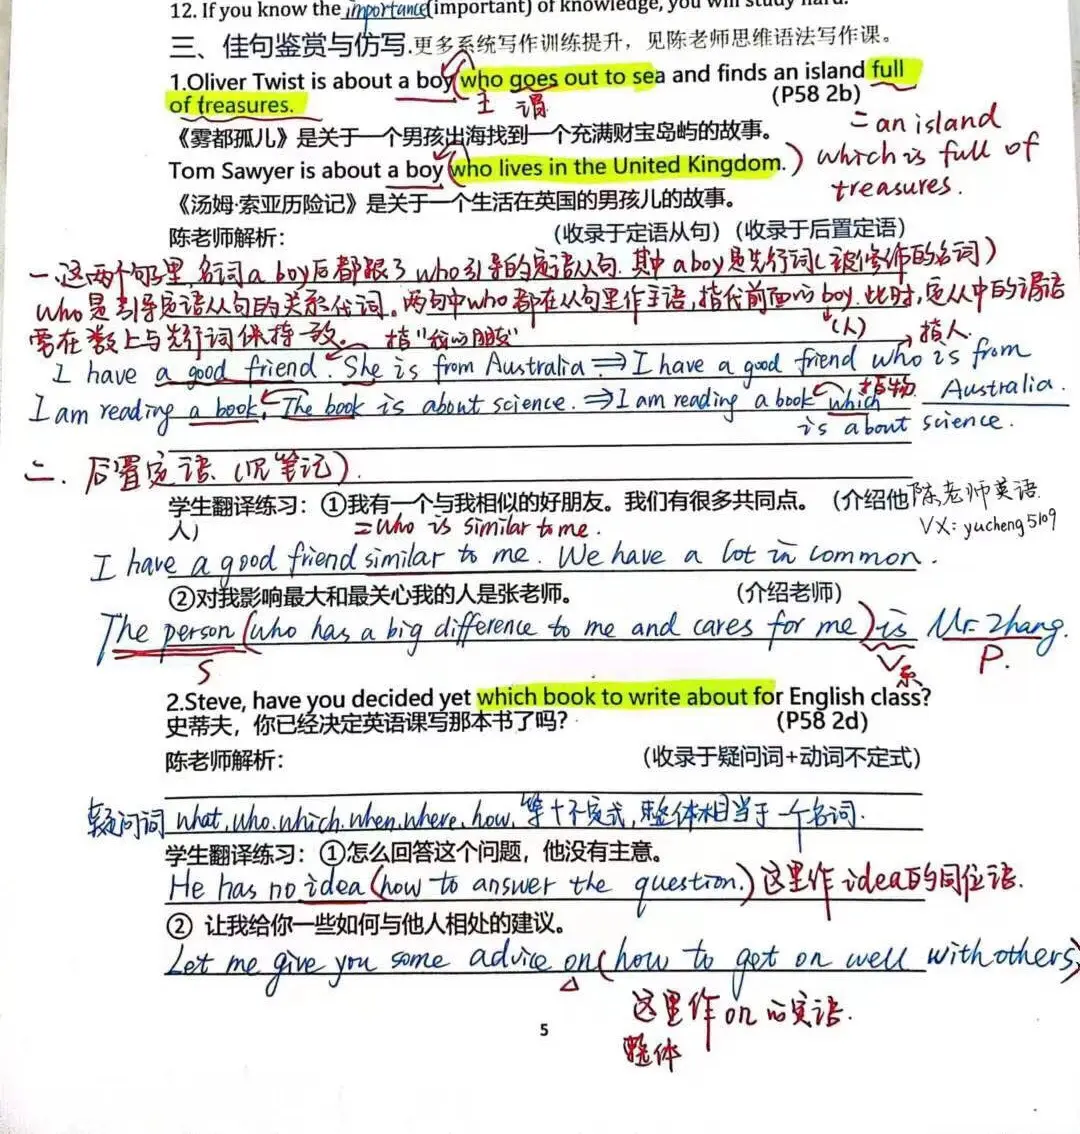 12. If you know the importance(important) of knowledge, you will study hard.
三、佳句鉴赏与仿写.更多系统写作训练提升，见陈老师思维语法写作课。
1.Oliver Twist is about a boy(who goes out to sea and finds an island full
of treasures.
主 谓
(P58 2b)
《雾都孤儿》是关于一个男孩出海找到一个充满财宝岛屿的故事。
= an island
which is full of
treasures.
Tom Sawyer is about a boy(who lives in the United Kingdom.)
《汤姆·索亚历险记》是关于一个生活在英国的男孩儿的故事。
陈老师解析：
(收录于定语从句)（收录于后置定语)
一.这两个句里,名词a boy后都跟了who引导的定语从句.其中a boy是先行词(被修饰的名词)
who是引导定语从句的关系代词。两句中who都在从句里作主语,指代前面的boy.此时,定从中的谓语
需在数上与先行词保持一致。 指"我的朋友"
(人)
指人.
I have a good friend. She is from Australia ⇒ I have a good friend who is from
Australia.
I am reading a book. The book is about science. ⇒ I am reading a book which
指物
is about science.
二. 后置定语.(见笔记).
学生翻译练习：①我有一个与我相似的好朋友。我们有很多共同点。（介绍他
人）
陈老师英语.
VX: yucheng5109
=who is similar to me.
I have a good friend similar to me. We have a lot in common.
②对我影响最大和最关心我的人是张老师。
（介绍老师）
The person (who has a big difference to me and cares for me) is Mr. Zhang.
S
V系
P.
2.Steve, have you decided yet which book to write about for English class?
史蒂夫，你已经决定英语课写那本书了吗？
(P58 2d)
陈老师解析：
（收录于疑问词+动词不定式）
疑问词 what, who, which, when, where, how, 等+不定式,整体相当于一个名词.
学生翻译练习：①怎么回答这个问题，他没有主意。
He has no idea (how to answer the question.) 这里作idea的同位语.
② 让我给你一些如何与他人相处的建议。
Let me give you some advice on (how to get on well with others)
这里作on的宾语.
整体
5